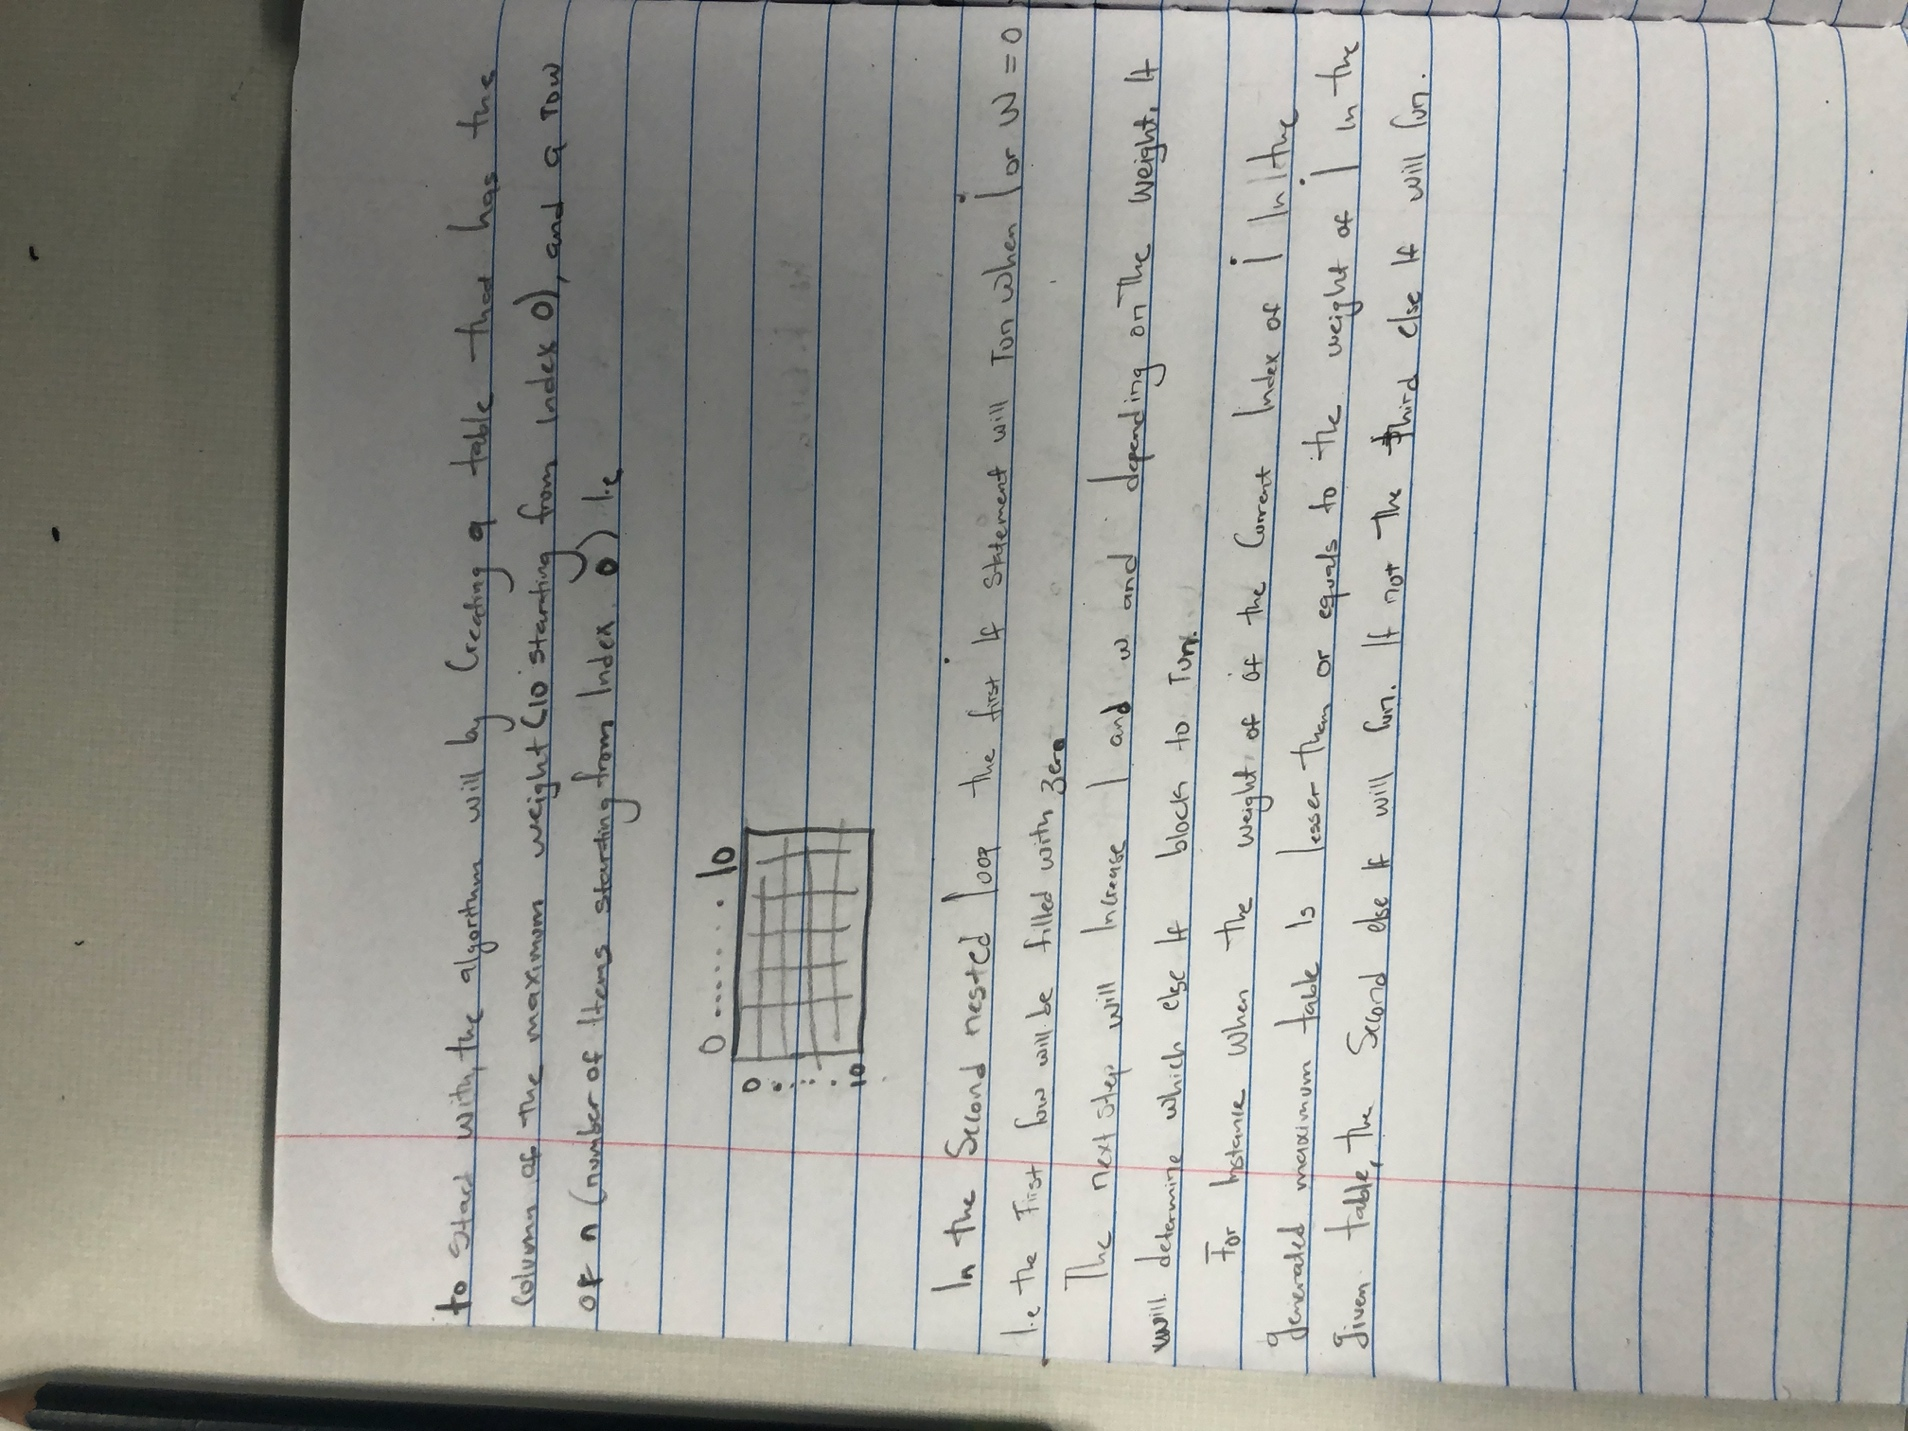 to start with, the algorithm will by Creating a table that has the
Column of the maximum weight (10 starting from Index 0), and a row
of n (number of Items starting from Index 0) I.e
0 ....... 10
0
.
:
:
.
10
In the Second nested loop the first If statement will run when i or W = 0
I.e the First row will be filled with zero
The next step will Increase I and w and depending on the weight, It
will determine which else If block to run.
For Instance when the weight of of the Current Index of i In the
generated maximum table Is lesser than or equals to the weight of i In the
given table, the Second else If will run. If not the third else If will run.